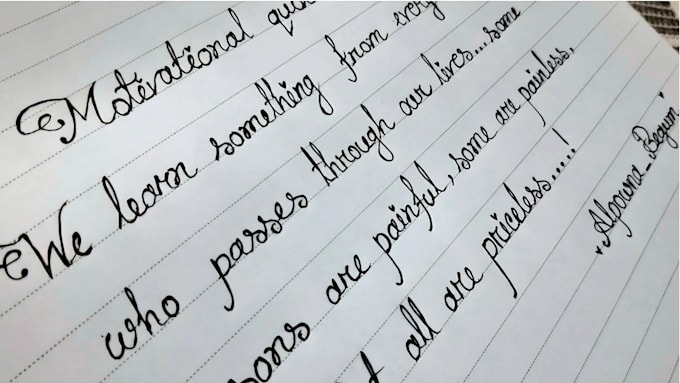 Motivational
We learn something from every
who passes through our lives...some
sons are painful, some are painless,
all are priceless.....!
Alpowna_Begum